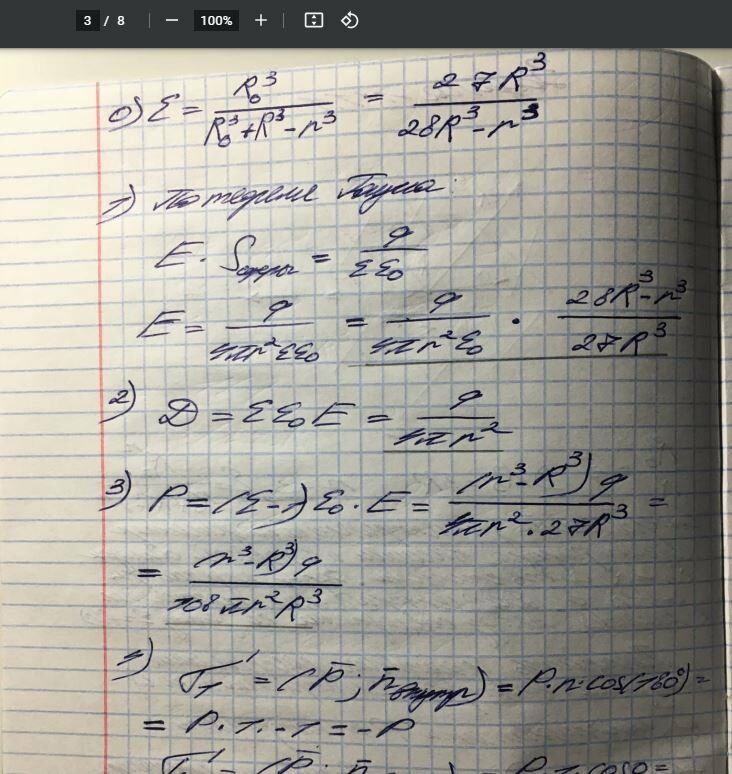 3 / 8 100%
0) ε = R₀³ / (R₀³ + R³ - r³) = 27R³ / (28R³ - r³)
1) По теореме Гаусса:
E · Sсферы = q / εε₀
E = q / 4πr²εε₀ = q / 4πr²ε₀ · (28R³ - r³) / 27R³
2) D = εε₀E = q / 4πr²
3) P = (ε - 1)ε₀ · E = (r³ - R³)q / 4πr² · 27R³ =
= (r³ - R³)q / 108πr²R³
4) σ₁' = (P̄; n̄внутр) = P · n · cos(180°) =
= P · 1 · -1 = -P